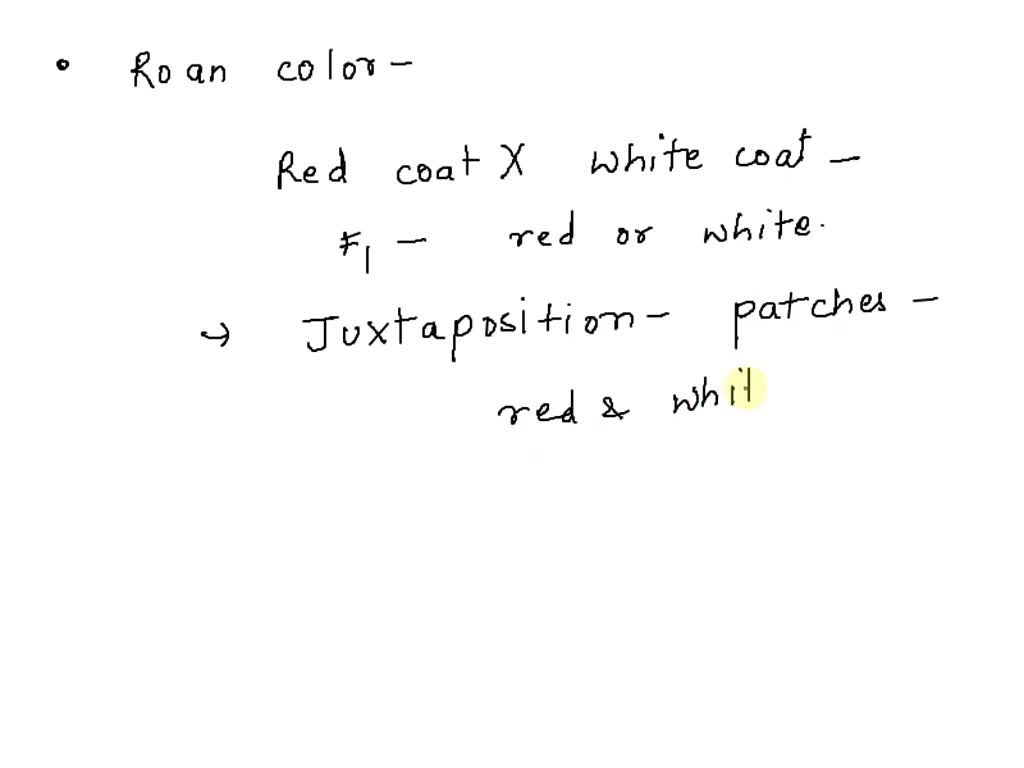 • Roan color -
Red coat X white coat -
F1 - red or white.
→ Juxtaposition - patches -
red & whit